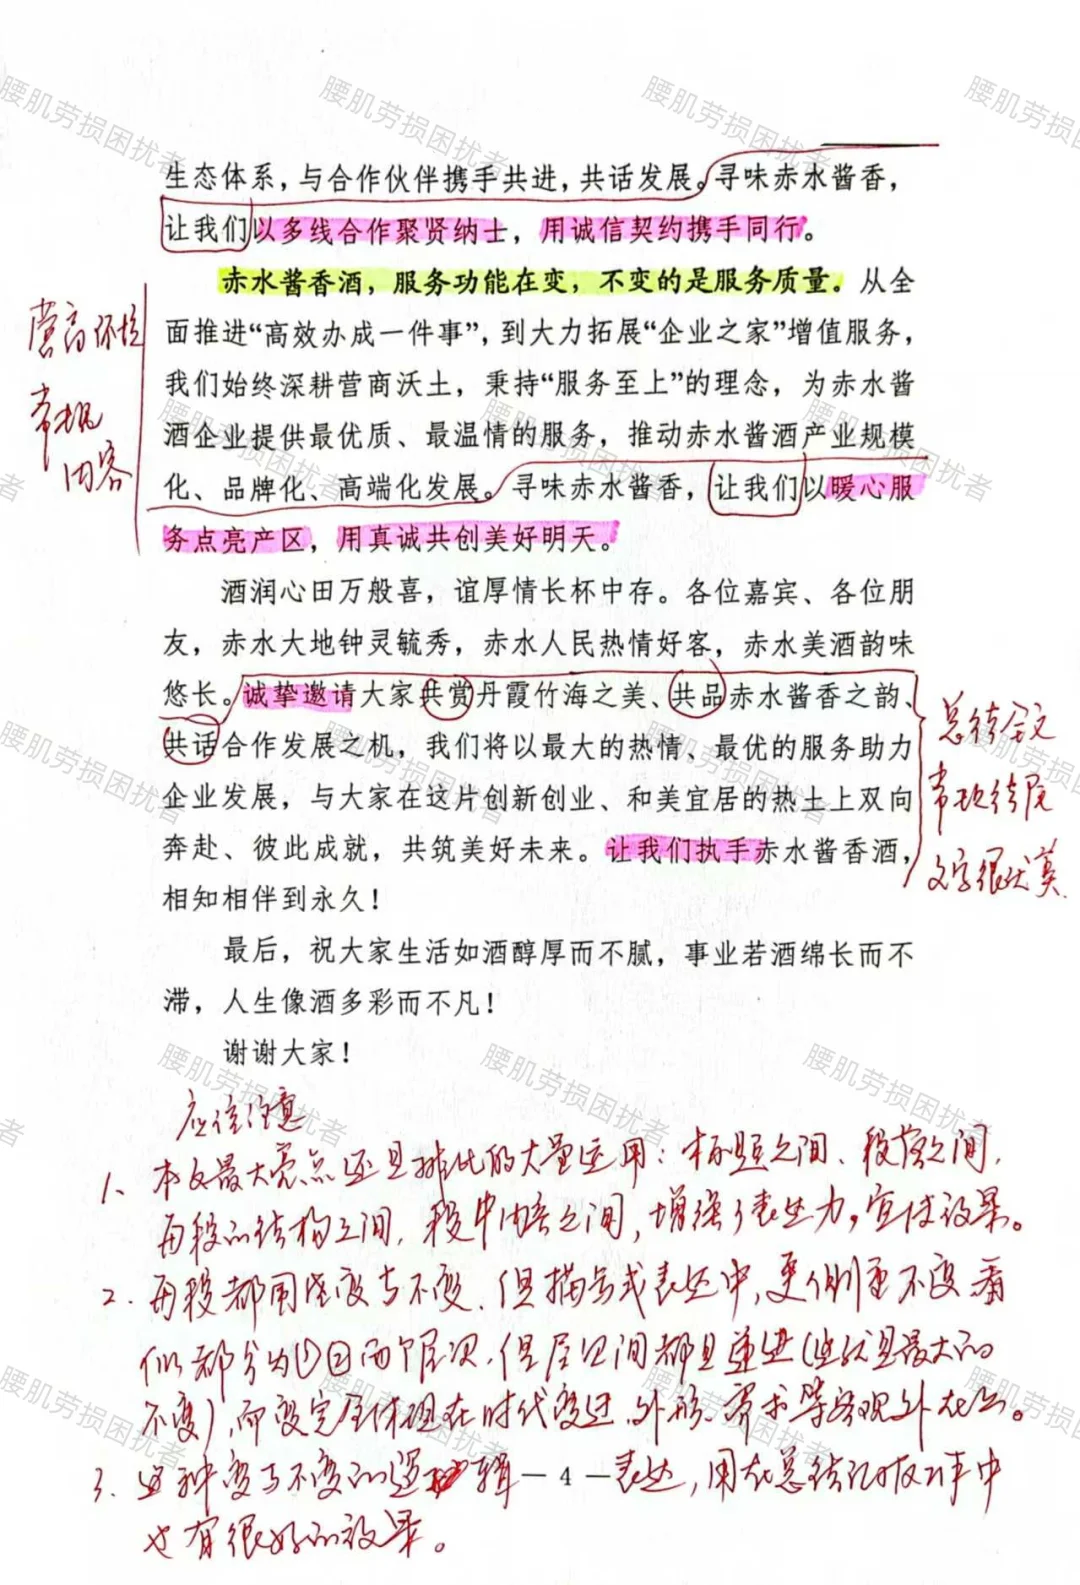 生态体系，与合作伙伴携手共进，共话发展。寻味赤水酱香，
让我们以多线合作聚贤纳士，用诚信契约携手同行。
赤水酱香酒，服务功能在变，不变的是服务质量。从全
面推进“高效办成一件事”，到大力拓展“企业之家”增值服务，
我们始终深耕营商沃土，秉持“服务至上”的理念，为赤水酱
酒企业提供最优质、最温情的服务，推动赤水酱酒产业规模
化、品牌化、高端化发展。寻味赤水酱香，让我们以暖心服
务点亮产区，用真诚共创美好明天。
营商环境
常规
内容
酒润心田万般喜，谊厚情长杯中存。各位嘉宾、各位朋
友，赤水大地钟灵毓秀，赤水人民热情好客，赤水美酒韵味
悠长。诚挚邀请大家共赏丹霞竹海之美、共品赤水酱香之韵、
共话合作发展之机，我们将以最大的热情、最优的服务助力
企业发展，与大家在这片创新创业、和美宜居的热土上双向
奔赴、彼此成就，共筑美好未来。让我们执手赤水酱香酒，
相知相伴到永久！
总结全文
常规结尾
文字很优美
最后，祝大家生活如酒醇厚而不腻，事业若酒绵长而不
滞，人生像酒多彩而不凡！
谢谢大家！
应该注意
1、本文最大亮点还是排比的大量运用：标题之间、段落之间、
每段的结构之间，段中内容之间，增强了表达力，宣传效果。
2．每段都围绕变与不变，但描写或表达中，更侧重不变，看
似都分为①②两个层次，但层次间都是并进（这就是最大的
不变），而变完全体现在时代变迁、外形、需求等客观外在上。
3．这种变与不变的逻辑表达，用在总结记叙工作中
也有很好的效果。
— 4 —
腰肌劳损困扰者